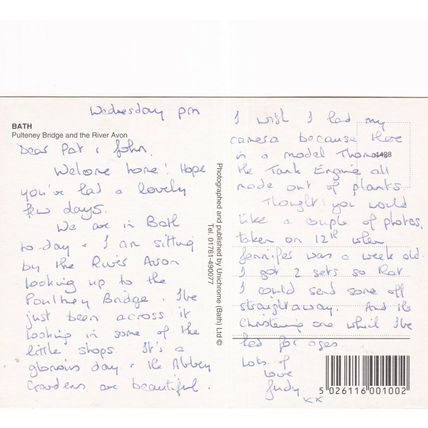 Wednesday pm
BATH
Pulteney Bridge and the River Avon
Dear Pat & John,
Welcome home! Hope
you've had a lovely
few days.
We are in Bath
to-day & I am sitting
by the River Avon
looking up to the
Poultney Bridge. I've
just been across it
looking in some of the
little shops. It's a
glorious day & the Abbey
Gardens are beautiful.
Photographed and published by Unichrome (Bath) Ltd ©
Tel. 01761-490077
I wish I had my
camera because there
is a model Thomas
the Tank Engine all
made out of plants.
Thought you would
like a couple of photos,
taken on 12th when
Jennifer was a week old
I got 2 sets so that
I could send some off
straight away. And the
Christening one which I've
had for ages.
Lots of
love
Judy
xx
5 026116 001002